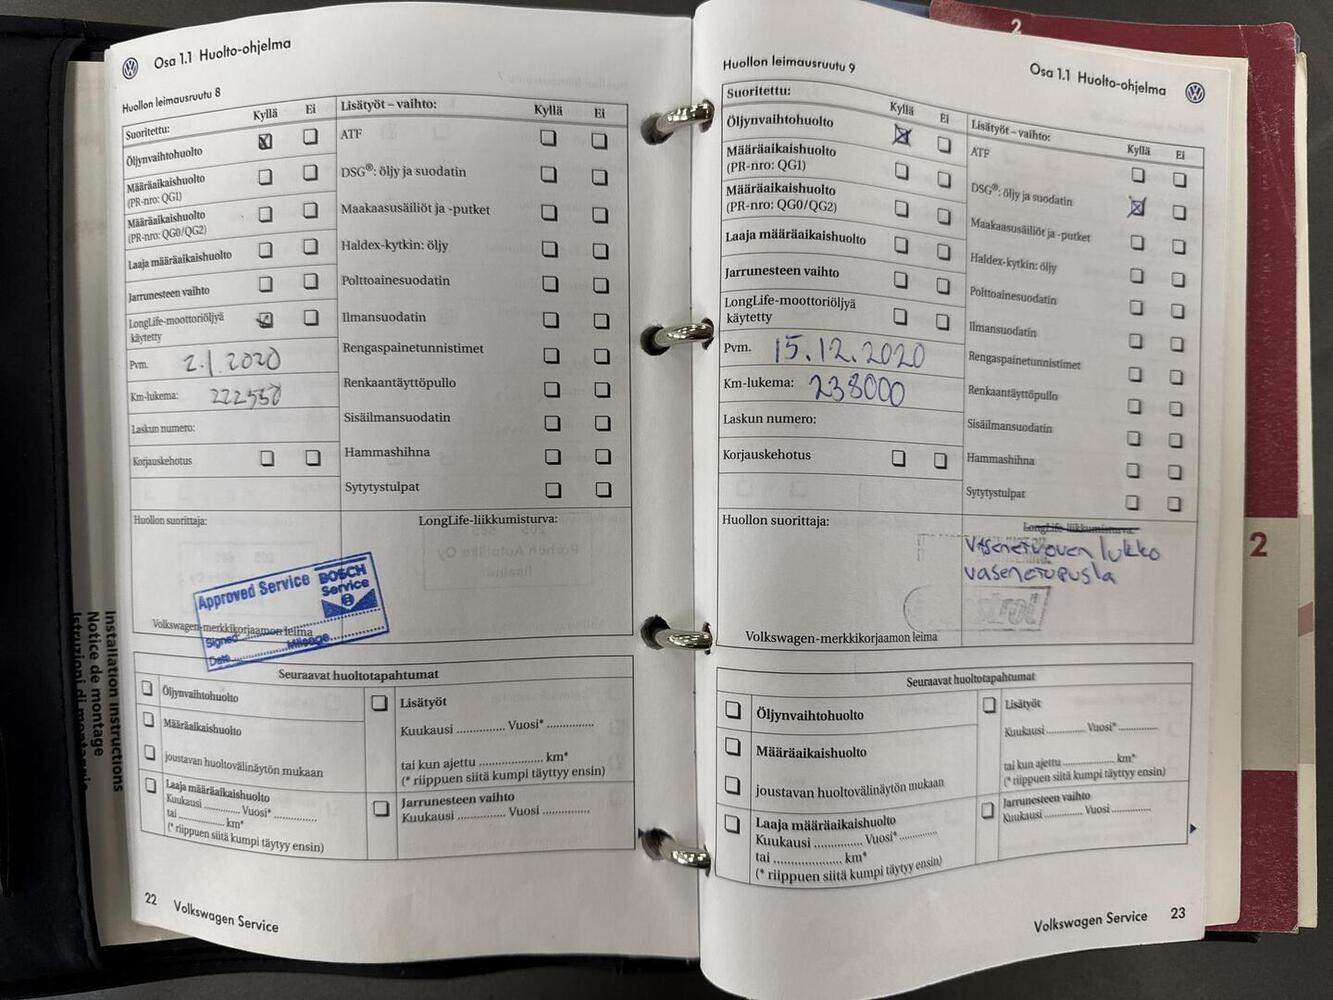 Osa 1.1 Huolto-ohjelma
Huollon leimausruutu 8
Suoritettu:
Kyllä
Ei
Öljynvaihtohuolto
Määräaikaishuolto
(PR-nro: QG1)
Määräaikaishuolto
(PR-nro: QG0/QG2)
Laaja määräaikaishuolto
Jarrunesteen vaihto
LongLife-moottoriöljyä
käytetty
Pvm. 2.1.2020
Km-lukema: 222550
Laskun numero:
Korjauskehotus
Lisätyöt – vaihto:
Kyllä
Ei
ATF
DSG®: öljy ja suodatin
Maakaasusäiliöt ja -putket
Haldex-kytkin: öljy
Polttoainesuodatin
Ilmansuodatin
Rengaspainetunnistimet
Renkaantäyttöpullo
Sisäilmansuodatin
Hammashihna
Sytytystulpat
Huollon suorittaja:
LongLife-liikkumisturva:
Approved Service
BOSCH
Service
Volkswagen-merkkikorjaamon leima
Signed
Date Mileage
Seuraavat huoltotapahtumat
Öljynvaihtohuolto
Määräaikaishuolto
joustavan huoltovälinäytön mukaan
Laaja määräaikaishuolto
Kuukausi ............ Vuosi* ..............
tai ............... km*
(* riippuen siitä kumpi täytyy ensin)
Lisätyöt
Kuukausi ............... Vuosi* ...............
tai kun ajettu ..................... km*
(* riippuen siitä kumpi täyttyy ensin)
Jarrunesteen vaihto
Kuukausi ............... Vuosi ...............
22 Volkswagen Service
Huollon leimausruutu 9
Osa 1.1 Huolto-ohjelma
2
Suoritettu:
Kyllä
Ei
Öljynvaihtohuolto
Määräaikaishuolto
(PR-nro: QG1)
Määräaikaishuolto
(PR-nro: QG0/QG2)
Laaja määräaikaishuolto
Jarrunesteen vaihto
LongLife-moottoriöljyä
käytetty
Pvm. 15.12.2020
Km-lukema: 238000
Laskun numero:
Korjauskehotus
Lisätyöt – vaihto:
Kyllä
Ei
ATF
DSG®: öljy ja suodatin
Maakaasusäiliöt ja -putket
Haldex-kytkin: öljy
Polttoainesuodatin
Ilmansuodatin
Rengaspainetunnistimet
Renkaantäyttöpullo
Sisäilmansuodatin
Hammashihna
Sytytystulpat
Huollon suorittaja:
LongLife-liikkumisturva:
vasenetuoven lukko
vasenetupusla
Volkswagen-merkkikorjaamon leima
Seuraavat huoltotapahtumat
Öljynvaihtohuolto
Määräaikaishuolto
joustavan huoltovälinäytön mukaan
Laaja määräaikaishuolto
Kuukausi ............... Vuosi* ............
tai ..................... km*
(* riippuen siitä kumpi täytyy ensin)
Lisätyöt
Kuukausi ............... Vuosi* ...............
tai kun ajettu .................. km*
(* riippuen siitä kumpi täyttyy ensin)
Jarrunesteen vaihto
Kuukausi ............... Vuosi ...............
Volkswagen Service 23
2
Installation instructions
Notice de montage